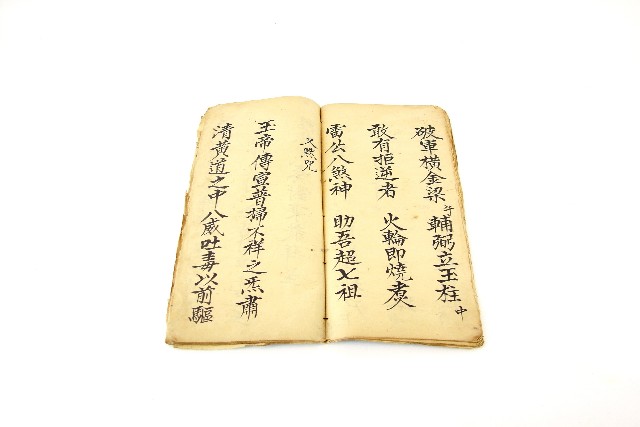 破軍橫金梁 輔弼立玉柱 中
敢有拒逆者 火輪即燒
雷公八煞神 助吾超七祖
又 咒
玉帝傳宣普掃不祥之炁肅
清黃道之中八威吐毒以前驅